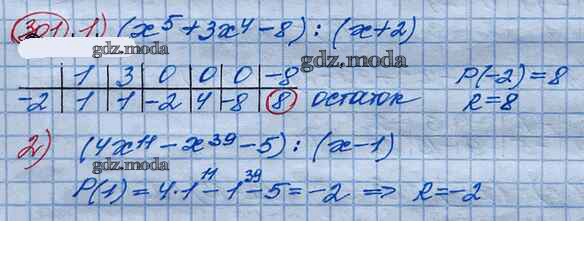 301. 1.) (x⁵+3x⁴-8) : (x+2)
gdz.moda
gdz.moda
1 3 0 0 0 -8
-2 1 1 -2 4 -8 8 остаток
P(-2)=8
R=8
2) (4x¹¹-x³⁹-5) : (x-1)
gdz.moda
P(1)=4·1¹¹-1³⁹-5=-2 => R=-2
gdz.moda